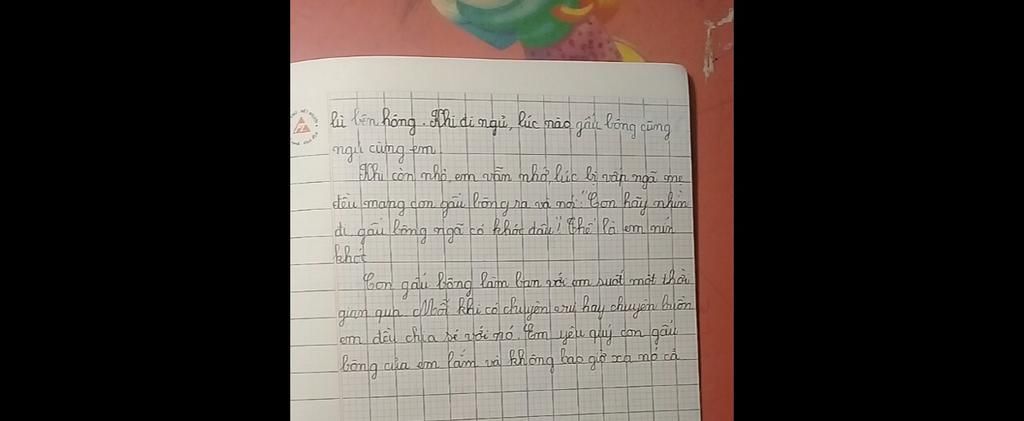 lù bên hông. Khi đi ngủ, lúc nào gấu bông cũng
ngủ cùng em.
Khi còn nhỏ, em vẫn nhớ, lúc bị vấp ngã mẹ
đều mang con gấu bông ra và nói: "Con hãy nhìn
đi gấu bông ngã có khóc đâu". Thế là em nín
khóc
Con gấu bông làm bạn với em suốt một thời
gian qua. Mỗi khi có chuyện vui hay chuyện buồn
em đều chia sẻ với nó. Em yêu quý con gấu
bông của em lắm và không bao giờ xa nó cả